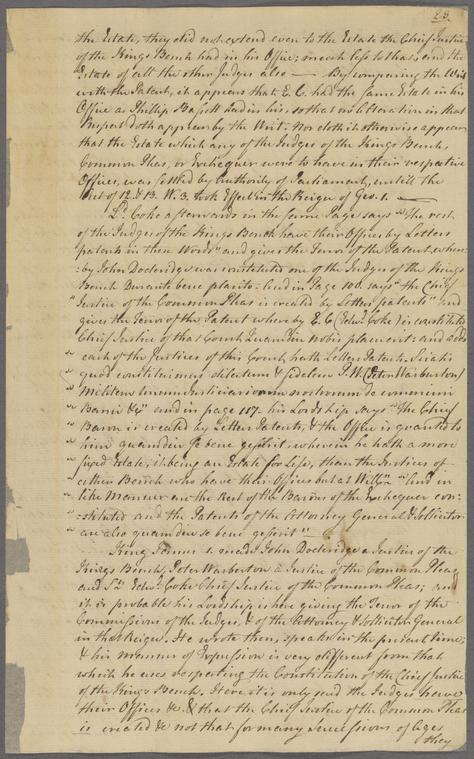 23.
the Estate, they did not extend even to the Estate the Chief Justice
of the Kings Bench had in his Office; much less to that and the
Estate of all the other Judges also — By comparing the Writ
with the Patent, it appears that E. C. had the same Estate in his
Office as Phillip Bassett had in his. so that no alteration in that
Respect doth appear by the Writ. Nor doth it otherwise appear
that the Estate which any of the Judges of the Kings Bench,
Common Pleas, or Exchequer were to have in their respective
Offices, was settled by Authority of Parliament, untill the
Act of 12. & 13. W. 3. took Effect in the Reign of Geo. 1. —
Ld. Coke afterwards in the same Page says "The rest
of the Judges of the Kings Bench have their Offices by Letters
patents in these Words" and gives the Tenor of the Patent, where
:by John Doderidge was constituted one of the Judges of the Kings
Bench Durante bene placito: And in Page 100. says "the Chief
"Justice of the Common Pleas is created by Letters patents" and
gives the Tenor of the Patent whereby E. C (Edwd. Coke) is constituted
Chief Justice of that Court Quamdiu nobis placuerit: and adds
" each of the Justices of this Court hath Letters Patents. Sciatis
" quod constituimus dilectum & fidelem P. W. (Peter Warburton)
" Militem unum Justiciariorum nostrorum de communi
" Banco &c" and in page 117. his Lordship says "The Chief
" Baron is created by Letters Patents, & the Office is granted to
" him quamdiu se bene gesserit, wherein he hath a more
" fixed Estate, it being an Estate for Life, than the Justices of
" either Bench who have their Offices but at Will." "And in
" like Manner are the Rest of the Barons of the Exchequer con-
" :stituted and the Patents of the Attorney General & Sollicitor
" are also quamdiu se bene gesserit" —
King James 1. made John Doderidge a Justice of the
Kings Bench, Peter Warburton a Justice of the Common Pleas,
and Sr. Edwd. Coke Chief Justice of the Common Pleas; and
it is probable his Lordship is here giving the Tenor of the
Commissions of the Judges, & of the Attorney & Sollicitor General
in that Reign. He wrote then, speaks in the present time,
& his manner of Expression is very different from that
which he uses respecting the Constitution of the Chief Justice
of the Kings Bench. Here it is only said the Judges have
their Offices &c. & that the Chief Justice of the Common Pleas
is created &c not that for many Successions of Ages
they